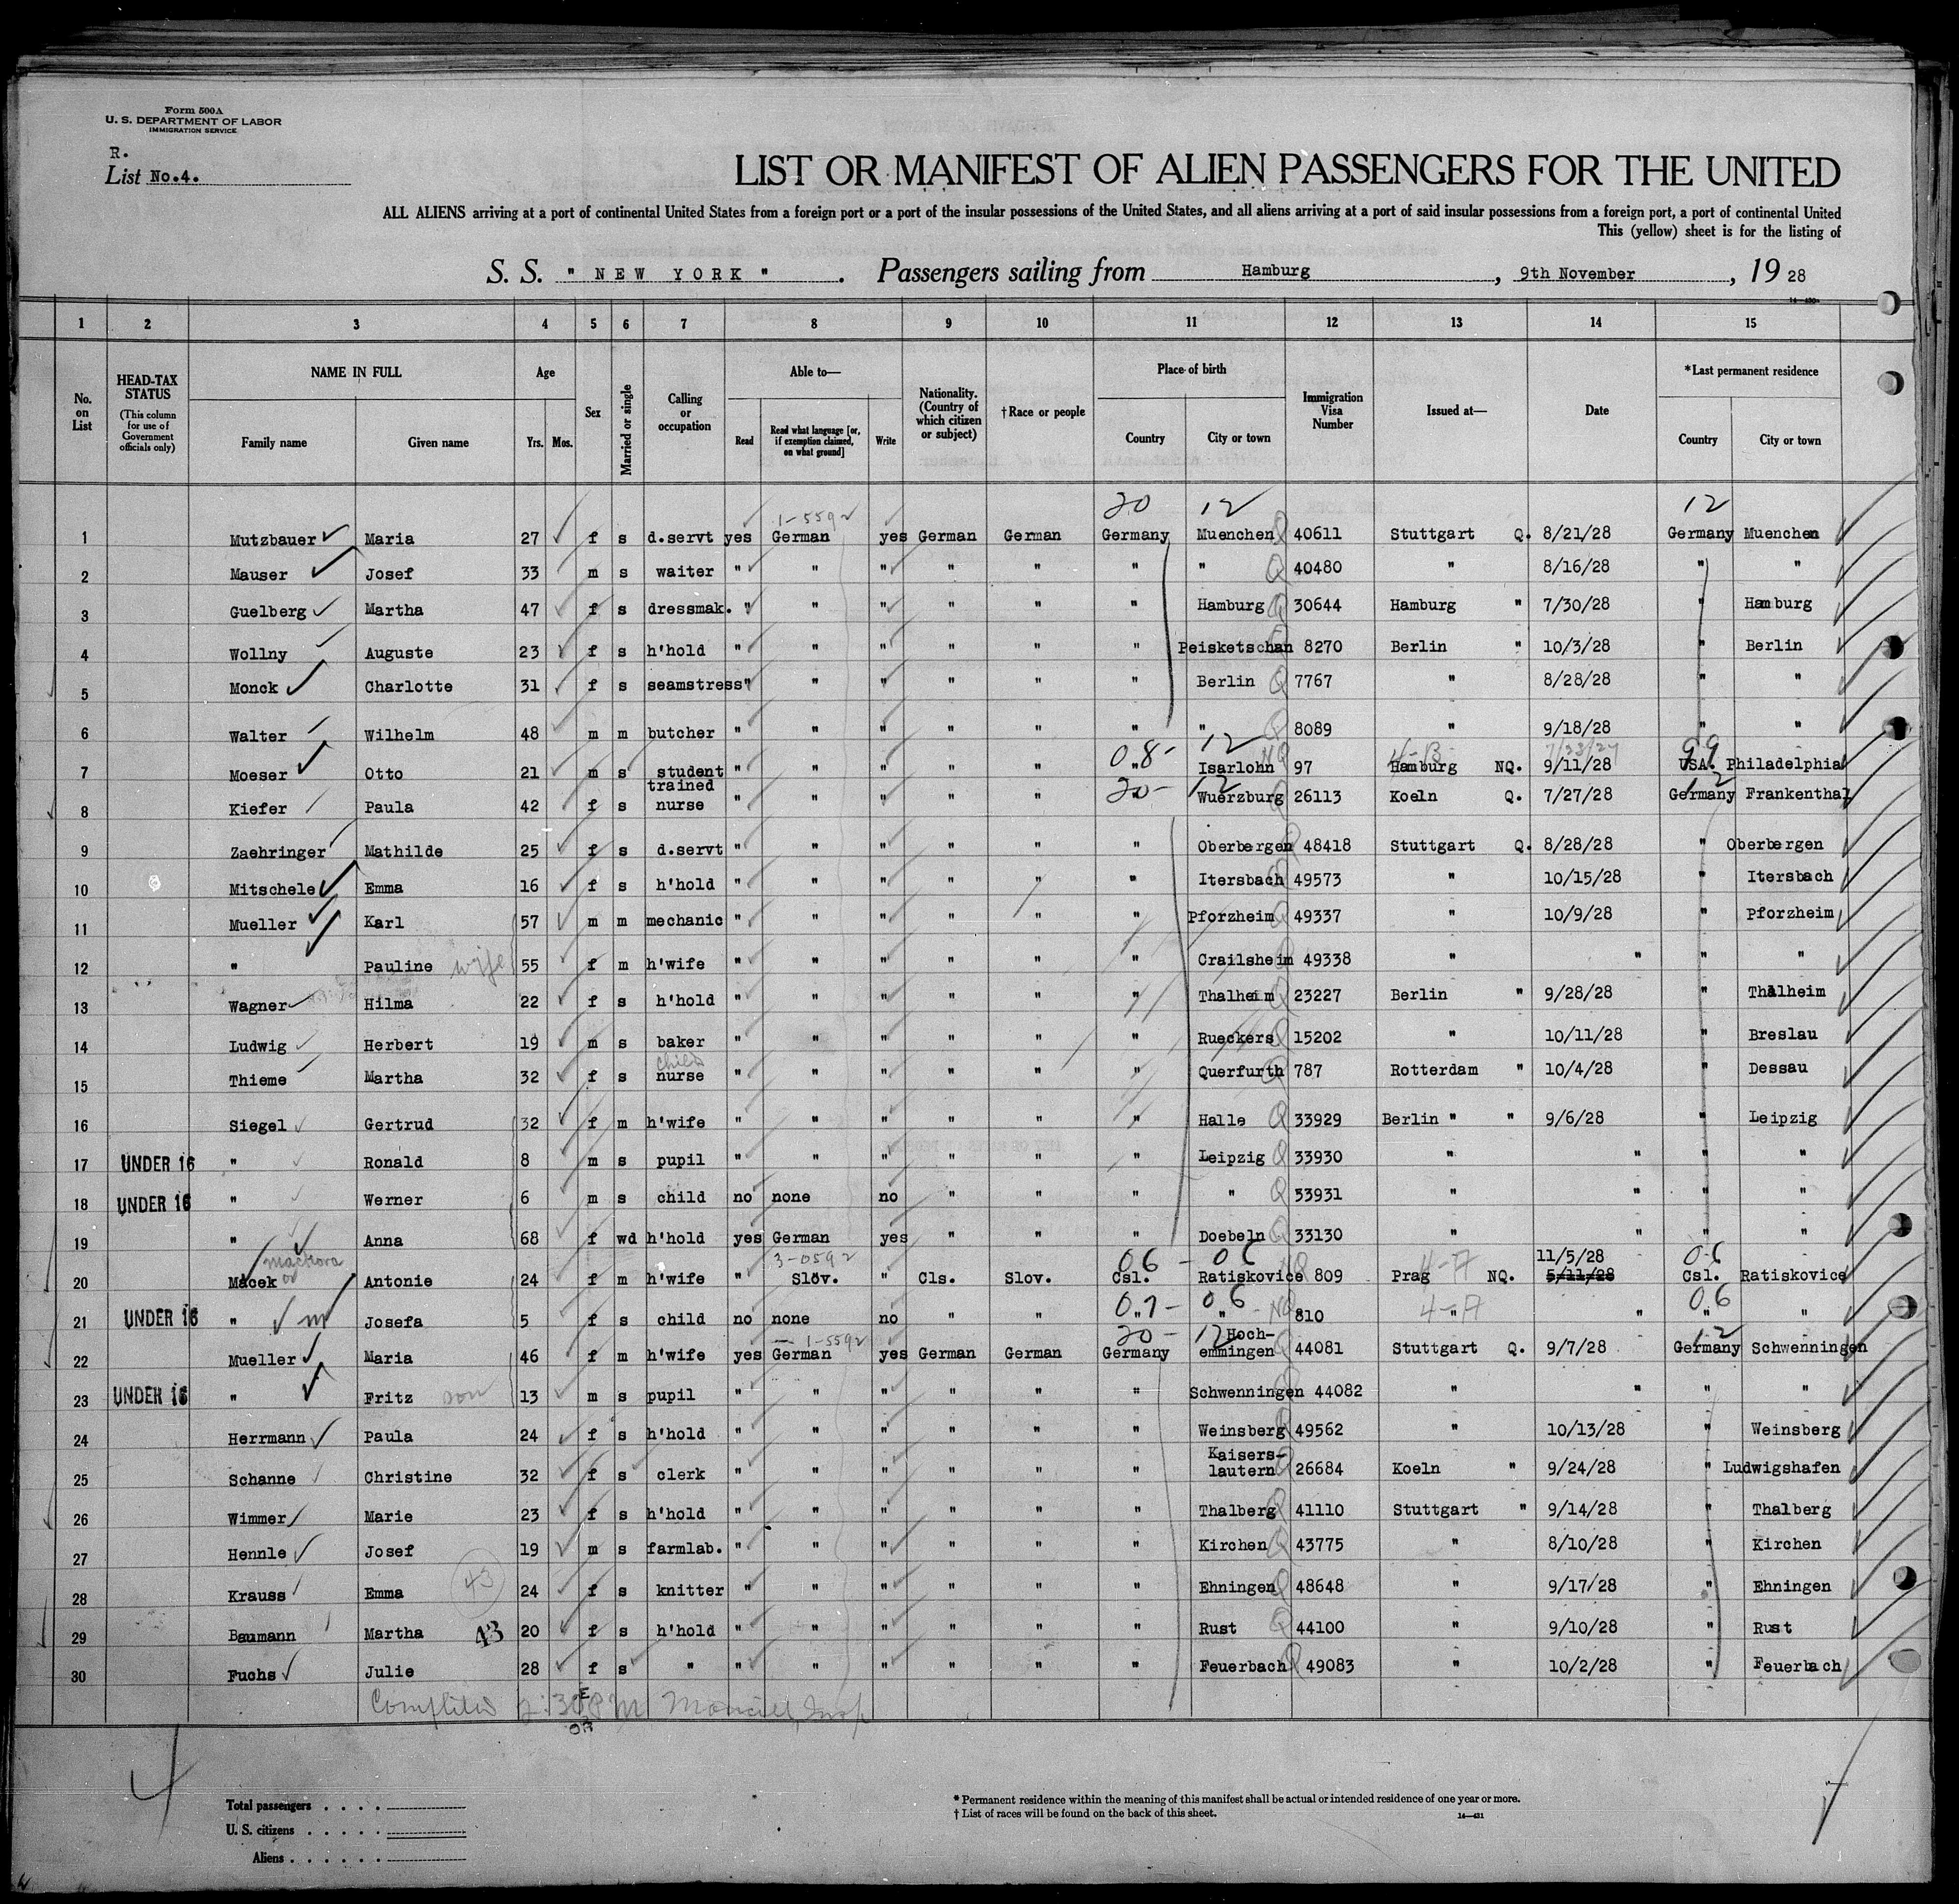 Form 500A
U. S. DEPARTMENT OF LABOR
IMMIGRATION SERVICE
R.
List No.4.
LIST OR MANIFEST OF ALIEN PASSENGERS FOR THE UNITED
ALL ALIENS arriving at a port of continental United States from a foreign port or a port of the insular possessions of the United States, and all aliens arriving at a port of said insular possessions from a foreign port, a port of continental United
This (yellow) sheet is for the listing of
S. S. "NEW YORK". Passengers sailing from Hamburg, 9th November, 19 28
1 2 3 4 5 6 7 8 9 10 11 12 13 14 15
No. on List
HEAD-TAX STATUS (This column for use of Government officials only)
NAME IN FULL Family name Given name
Age Yrs. Mos.
Sex
Married or single
Calling or occupation
Able to— Read Read what language [or, if exemption claimed, on what ground] Write
Nationality. (Country of which citizen or subject)
†Race or people
Place of birth Country City or town
Immigration Visa Number
Issued at—
Date
*Last permanent residence Country City or town
20 12 12
1-5592
1 Mutzbauer Maria 27 f s d.servt yes German yes German German Germany Muenchen 40611 Stuttgart Q. 8/21/28 Germany Muenchen
2 Mauser Josef 33 m s waiter " " " " " " " 40480 " 8/16/28 " "
3 Guelberg Martha 47 f s dressmak. " " " " " " Hamburg 30644 Hamburg " 7/30/28 " Hamburg
4 Wollny Auguste 23 f s h'hold " " " " " " Peisketschan 8270 Berlin " 10/3/28 " Berlin
5 Monck Charlotte 31 f s seamstress " " " " " " Berlin 7767 " 8/28/28 " "
6 Walter Wilhelm 48 m m butcher " " " " " " " 8089 " 9/18/28 " "
08- 12 NQ 4-B 99
7 Moeser Otto 21 m s student " " " " " " Isarlohn 97 Hamburg NQ. 9/11/28 USA. Philadelphia
20- 12 12
8 Kiefer Paula 42 f s trained nurse " " " " " " Wuerzburg 26113 Koeln Q. 7/27/28 Germany Frankenthal
9 Zaehringer Mathilde 25 f s d.servt " " " " " " Oberbergen 48418 Stuttgart Q. 8/28/28 " Oberbergen
10 Mitschele Emma 16 f s h'hold " " " " " " Itersbach 49573 " 10/15/28 " Itersbach
11 Mueller Karl 57 m m mechanic " " " " " " Pforzheim 49337 " 10/9/28 " Pforzheim
12 " Pauline wife 55 f m h'wife " " " " " " Crailsheim 49338 " " " "
13 Wagner Hilma 22 f s h'hold " " " " " " Thalheim 23227 Berlin " 9/28/28 " Thalheim
14 Ludwig Herbert 19 m s baker " " " " " " Rueckers 15202 " 10/11/28 " Breslau
15 Thieme Martha 32 f s child nurse " " " " " " Querfurth 787 Rotterdam " 10/4/28 " Dessau
16 Siegel Gertrud 32 f m h'wife " " " " " " Halle 33929 Berlin " " 9/6/28 " Leipzig
17 UNDER 16 " Ronald 8 m s pupil " " " " " " Leipzig 33930 " " " "
18 UNDER 16 " Werner 6 m s child no none no " " " " 33931 " " " "
19 " Anna 68 f wd h'hold yes German yes " " " Doebeln 33130 " " " "
or 3-0592 06 - 06 4-A 11/5/28 06
20 Macek Antonie 24 f m h'wife " Slov. " Cls. Slov. Csl. Ratiskovice 809 Prag NQ. 5/11/28 Csl. Ratiskovice
07- 06 NQ 4-A 06
21 UNDER 16 " Josefa 5 f s child no none no " " " " 810 " " " "
1-5592 20- 12 12
22 Mueller Maria 46 f m h'wife yes German yes German German Germany Hoch-emmingen 44081 Stuttgart Q. 9/7/28 Germany Schwenningen
23 UNDER 16 " Fritz son 13 m s pupil " " " " " " Schwenningen 44082 " " " "
24 Herrmann Paula 24 f s h'hold " " " " " " Weinsberg 49562 " 10/13/28 " Weinsberg
25 Schanne Christine 32 f s clerk " " " " " " Kaisers-lautern 26684 Koeln " 9/24/28 " Ludwigshafen
26 Wimmer Marie 23 f s h'hold " " " " " " Thalberg 41110 Stuttgart " 9/14/28 " Thalberg
27 Hennle Josef 19 m s farmlab. " " " " " " Kirchen 43775 " 8/10/28 " Kirchen
28 Krauss Emma 43 24 f s knitter " " " " " " Ehningen 48648 " 9/17/28 " Ehningen
29 Baumann Martha 43 20 f s h'hold " " " " " " Rust 44100 " 9/10/28 " Rust
30 Fuchs Julie 28 f s " " " " " " " Feuerbach 49083 " 10/2/28 " Feuerbach
Total passengers . . . .
U. S. citizens . . . . .
Aliens . . . . . .
* Permanent residence within the meaning of this manifest shall be actual or intended residence of one year or more.
† List of races will be found on the back of this sheet.
14—431